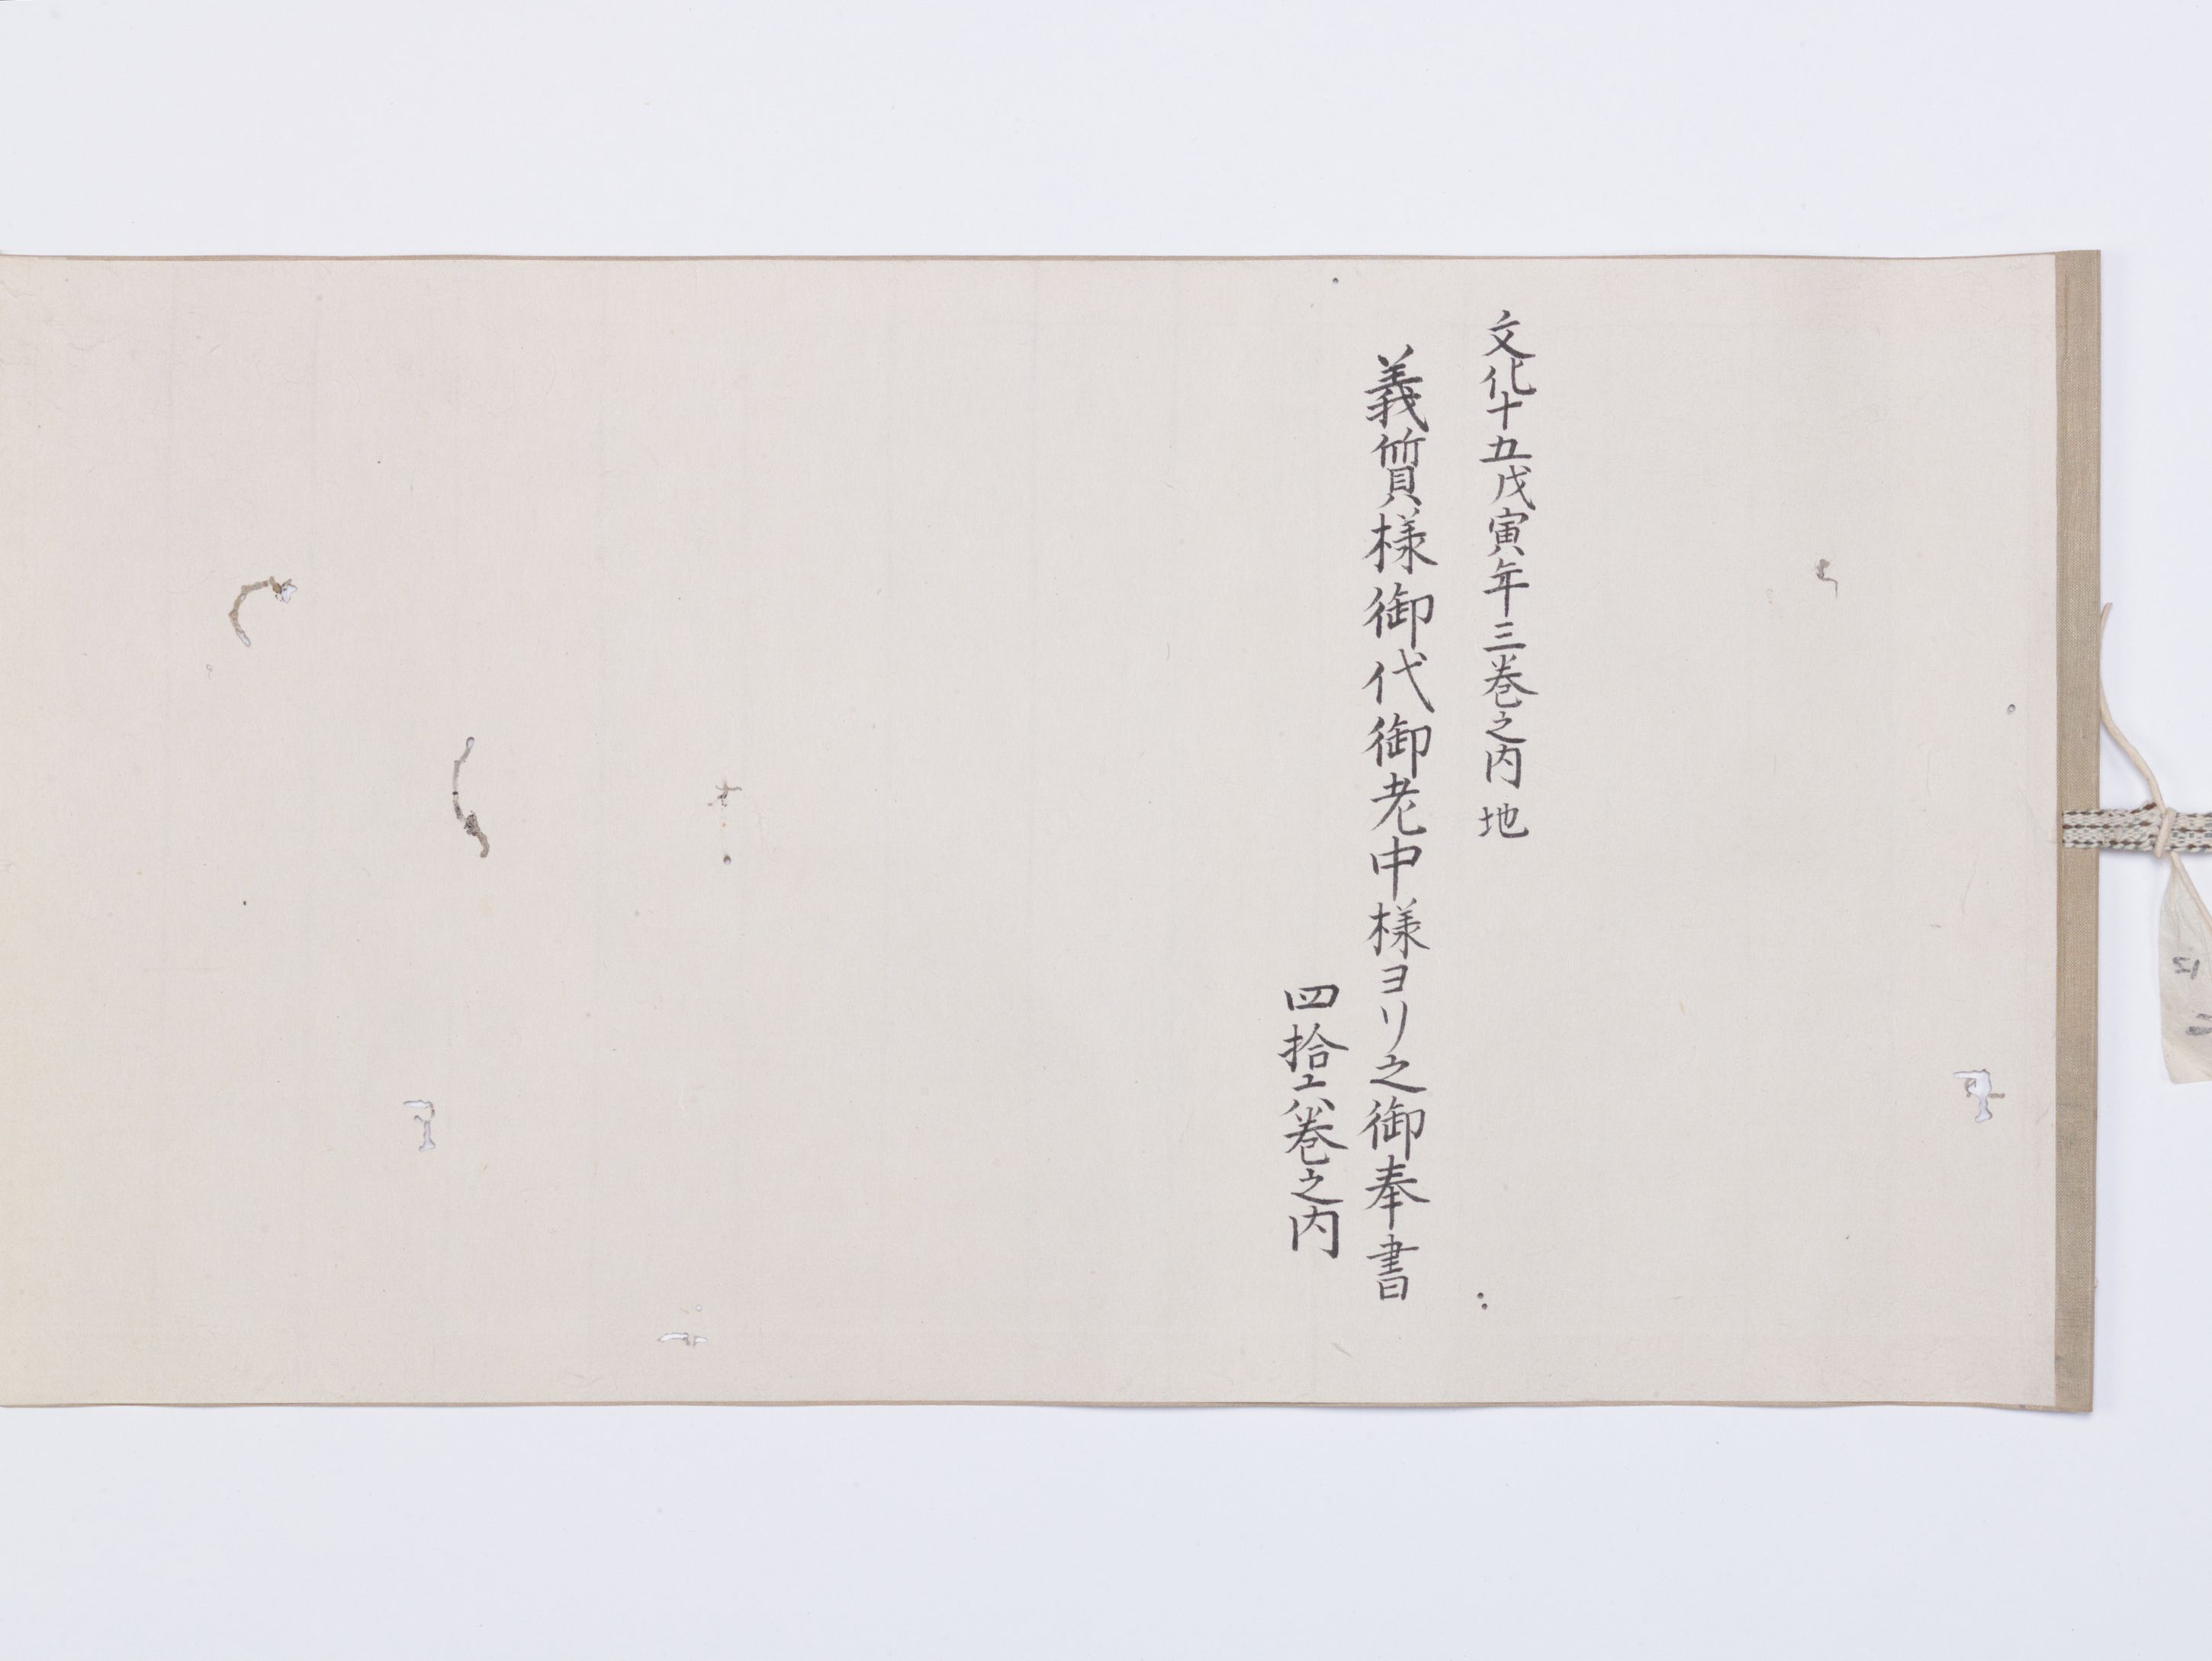 文化十五戊寅年三巻之内 地
義質様御代御老中様ヨリ之御奉書
四拾六巻之内